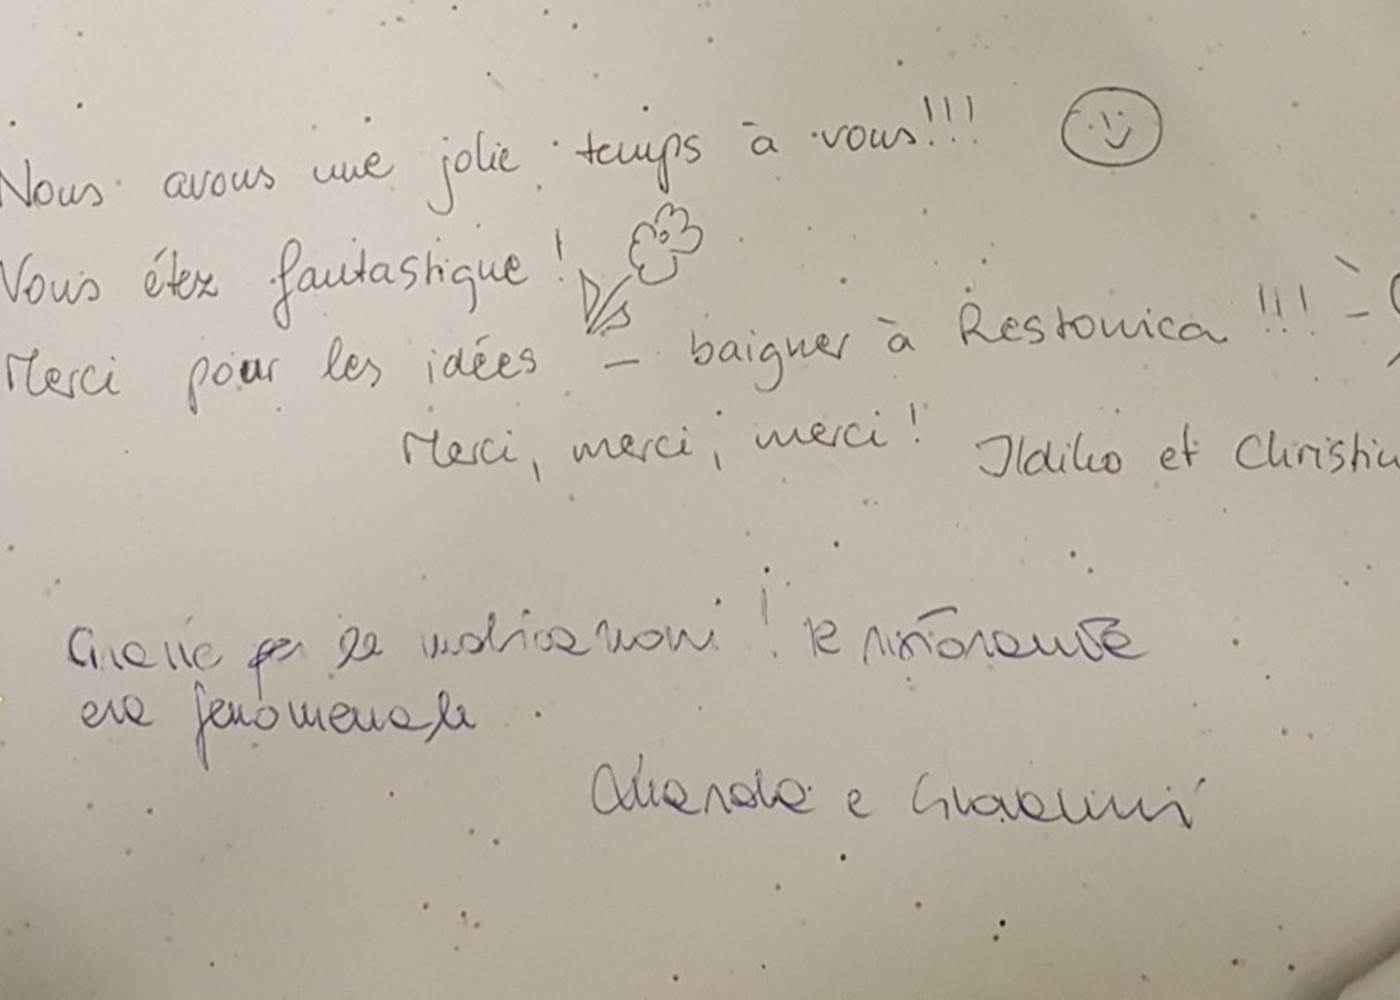 Nous avons une jolie temps à vous!!!
Vous étez fantastique!
Merci pour les idées – baigner à Restonica!!! –
Merci, merci, merci! Ildiko et Christin
Grazie per le indicazioni! Il ristorante
era fenomenale
e Giovanni